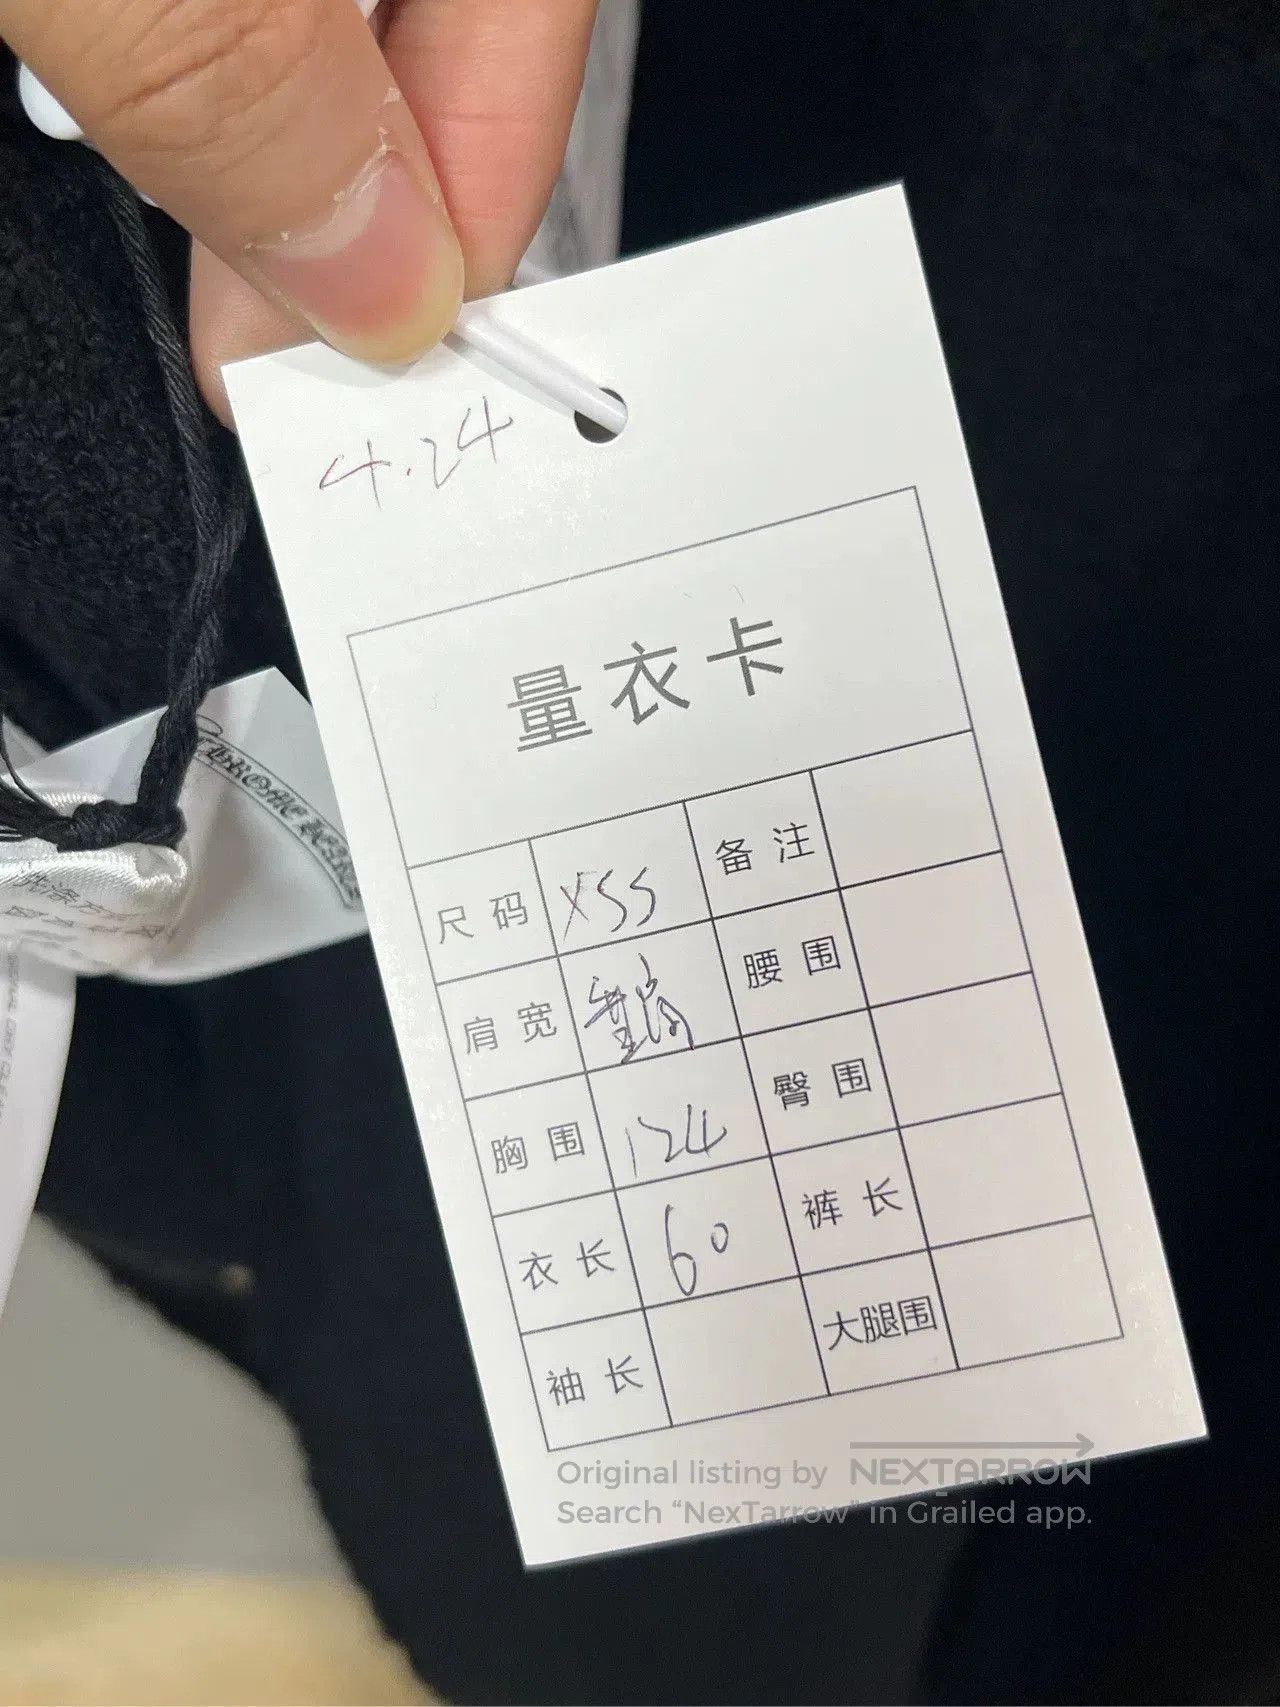 4.24
量衣卡
尺码 XSS 备注
肩宽 腰围
胸围 124 臀围
衣长 60 裤长
袖长 大腿围
CHROME HEARTS
Original listing by NEXTARROW
Search “NexTarrow” in Grailed app.